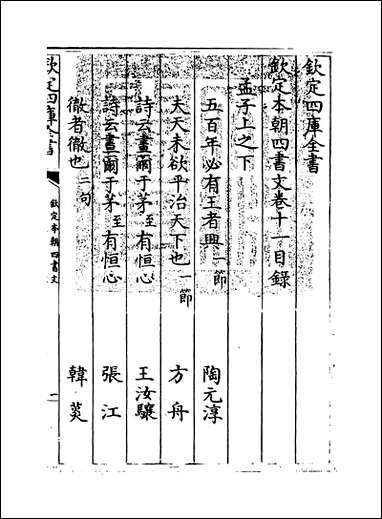 欽定四庫全書
欽定本朝四書文卷十一目錄
孟子上之下
五百年必有王者興 一節 陶元淳
夫天未欲平治天下也 一節 方舟
詩云晝爾于茅 至 有恒心 王汝驤
詩云晝爾于茅 至 有恒心 張江
徹者徹也 二句 韓菼
欽定四庫全書
欽定本朝四書文
一